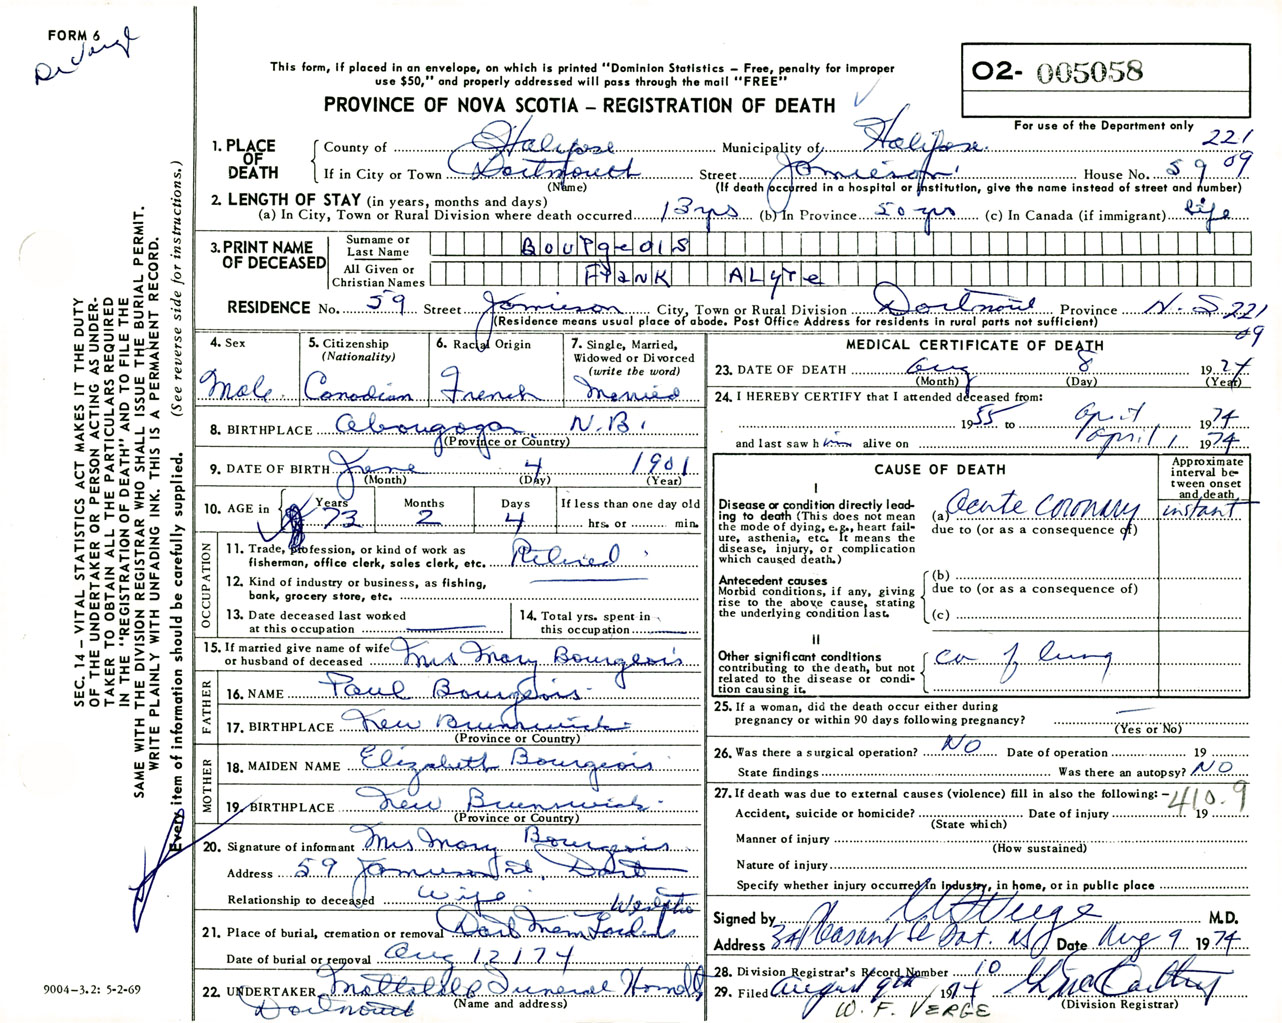 FORM 6
De Verge
This form, if placed in an envelope, on which is printed "Dominion Statistics – Free, penalty for improper
use $50," and properly addressed will pass through the mail "FREE"
PROVINCE OF NOVA SCOTIA – REGISTRATION OF DEATH
O2- 005058
For use of the Department only
221
09
1. PLACE OF DEATH
County of Halifax Municipality of Halifax
If in City or Town Dartmouth Street Jamieson House No. 59
(Name) (If death occurred in a hospital or institution, give the name instead of street and number)
2. LENGTH OF STAY (in years, months and days)
(a) In City, Town or Rural Division where death occurred 13 yrs (b) In Province 50 yrs (c) In Canada (if immigrant) life
3. PRINT NAME OF DECEASED
Surname or Last Name BOURgeOIS
All Given or Christian Names FRANK ALYRe
RESIDENCE No. 59 Street Jamieson City, Town or Rural Division Dartmouth Province N.S. 221
09
(Residence means usual place of abode. Post Office Address for residents in rural parts not sufficient)
4. Sex
Male
5. Citizenship
(Nationality)
Canadian
6. Racial Origin
French
7. Single, Married,
Widowed or Divorced
(write the word)
Married
8. BIRTHPLACE Abougogan N.B.
(Province or Country)
9. DATE OF BIRTH June 4 1901
(Month) (Day) (Year)
10. AGE in Years 73 Months 2 Days 4
If less than one day old
hrs. or min.
OCCUPATION
11. Trade, profession, or kind of work as
fisherman, office clerk, sales clerk, etc. Retired
12. Kind of industry or business, as fishing,
bank, grocery store, etc.
13. Date deceased last worked
at this occupation
14. Total yrs. spent in
this occupation
15. If married give name of wife
or husband of deceased Mrs Mary Bourgeois
FATHER
16. NAME Paul Bourgeois
17. BIRTHPLACE New Brunswick
(Province or Country)
MOTHER
18. MAIDEN NAME Elizabeth Bourgeois
19. BIRTHPLACE New Brunswick
(Province or Country)
20. Signature of informant Mrs Mary Bourgeois
Address 59 Jamieson St, Dart
Relationship to deceased Wife
21. Place of burial, cremation or removal Dart Mem Gardens
Date of burial or removal Aug 12 1974
22. UNDERTAKER Mattatall Funeral Home
Dartmouth (Name and address)
MEDICAL CERTIFICATE OF DEATH
23. DATE OF DEATH Aug 8 1974
(Month) (Day) (Year)
24. I HEREBY CERTIFY that I attended deceased from:
1955 to April 1974
and last saw him alive on April 1, 1974
CAUSE OF DEATH
Approximate
interval be-
tween onset
and death
I
Disease or condition directly lead-
ing to death (This does not mean
the mode of dying, e.g., heart fail-
ure, asthenia, etc. It means the
disease, injury, or complication
which caused death.)
(a) Acute coronary instant
due to (or as a consequence of)
Antecedent causes
Morbid conditions, if any, giving
rise to the above cause, stating
the underlying condition last.
(b)
due to (or as a consequence of)
(c)
II
Other significant conditions
contributing to the death, but not
related to the disease or condi-
tion causing it.
ca of lung
25. If a woman, did the death occur either during
pregnancy or within 90 days following pregnancy?
(Yes or No)
26. Was there a surgical operation? NO Date of operation 19
State findings Was there an autopsy? NO
27. If death was due to external causes (violence) fill in also the following: – 410.9
Accident, suicide or homicide? Date of injury 19
(State which)
Manner of injury
(How sustained)
Nature of injury
Specify whether injury occurred in industry, in home, or in public place
Signed by W F Verge M.D.
Address 34 Pleasant St Dart. NS Date Aug 9 1974
28. Division Registrar's Record Number 10
29. Filed August 9th 1974 McCarthy
(Division Registrar)
W. F. VERGE
SEC. 14 – VITAL STATISTICS ACT MAKES IT THE DUTY
OF THE UNDERTAKER OR PERSON ACTING AS UNDER-
TAKER TO OBTAIN ALL THE PARTICULARS REQUIRED
IN THE "REGISTRATION OF DEATH" AND TO FILE THE
SAME WITH THE DIVISION REGISTRAR WHO SHALL ISSUE THE BURIAL PERMIT.
WRITE PLAINLY WITH UNFADING INK. THIS IS A PERMANENT RECORD.
Every item of information should be carefully supplied. (See reverse side for instructions.)
9004–3.2: 5-2-69